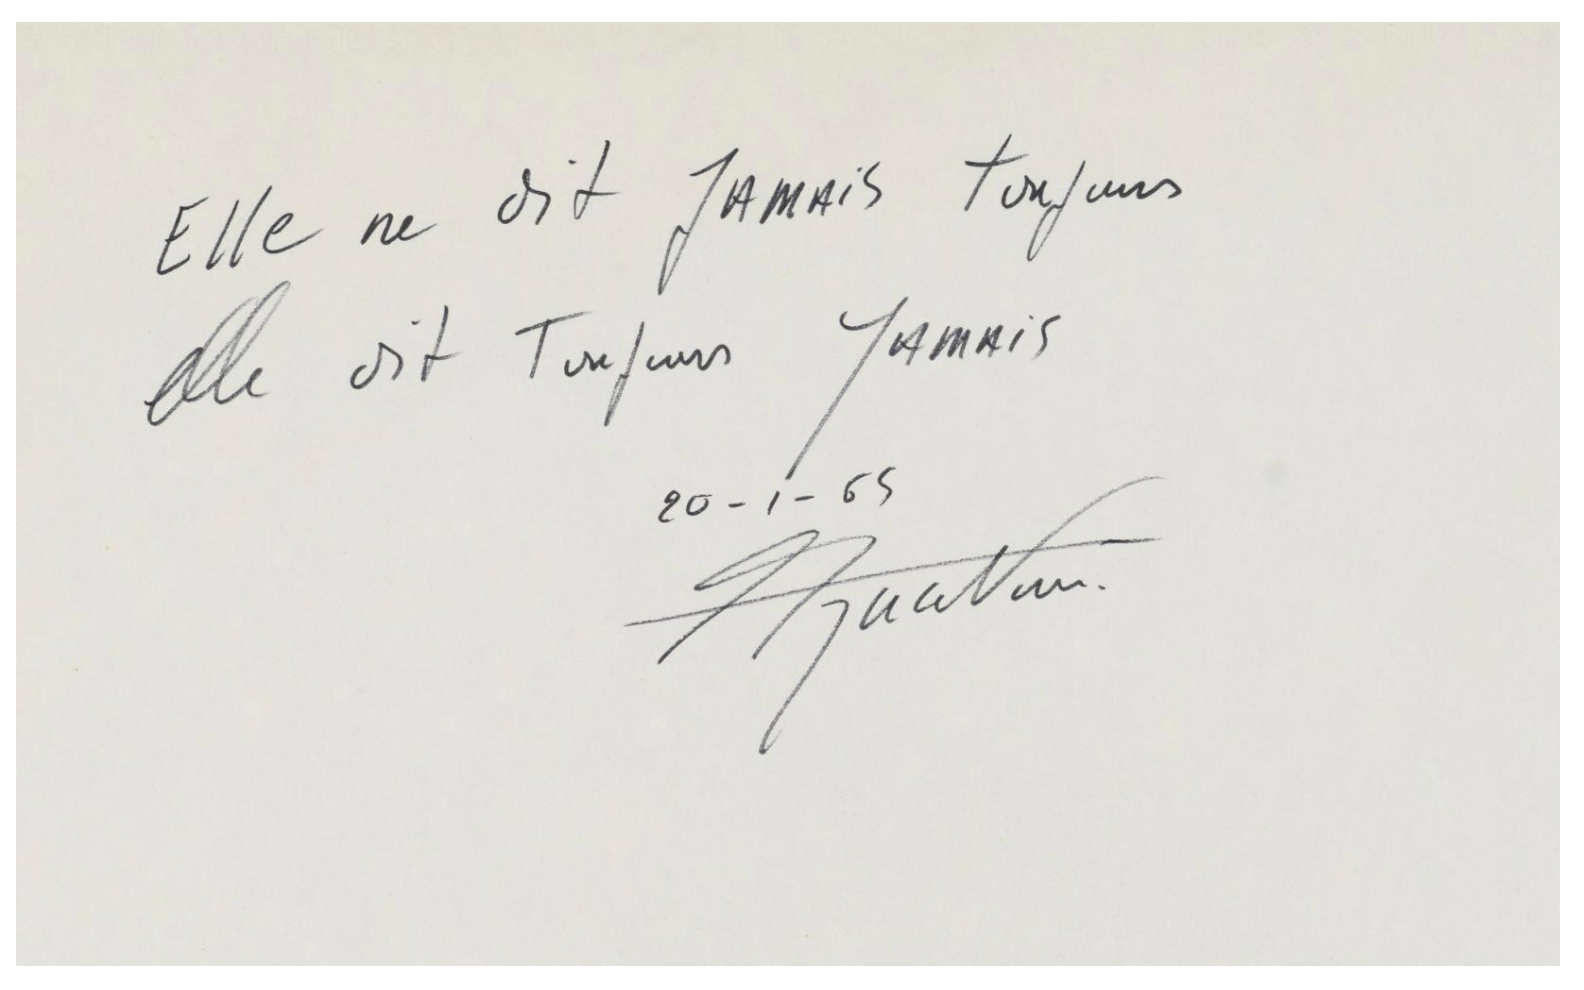 Elle ne dit JAMAIS toujours
elle dit Toujours JAMAIS
20-1-65